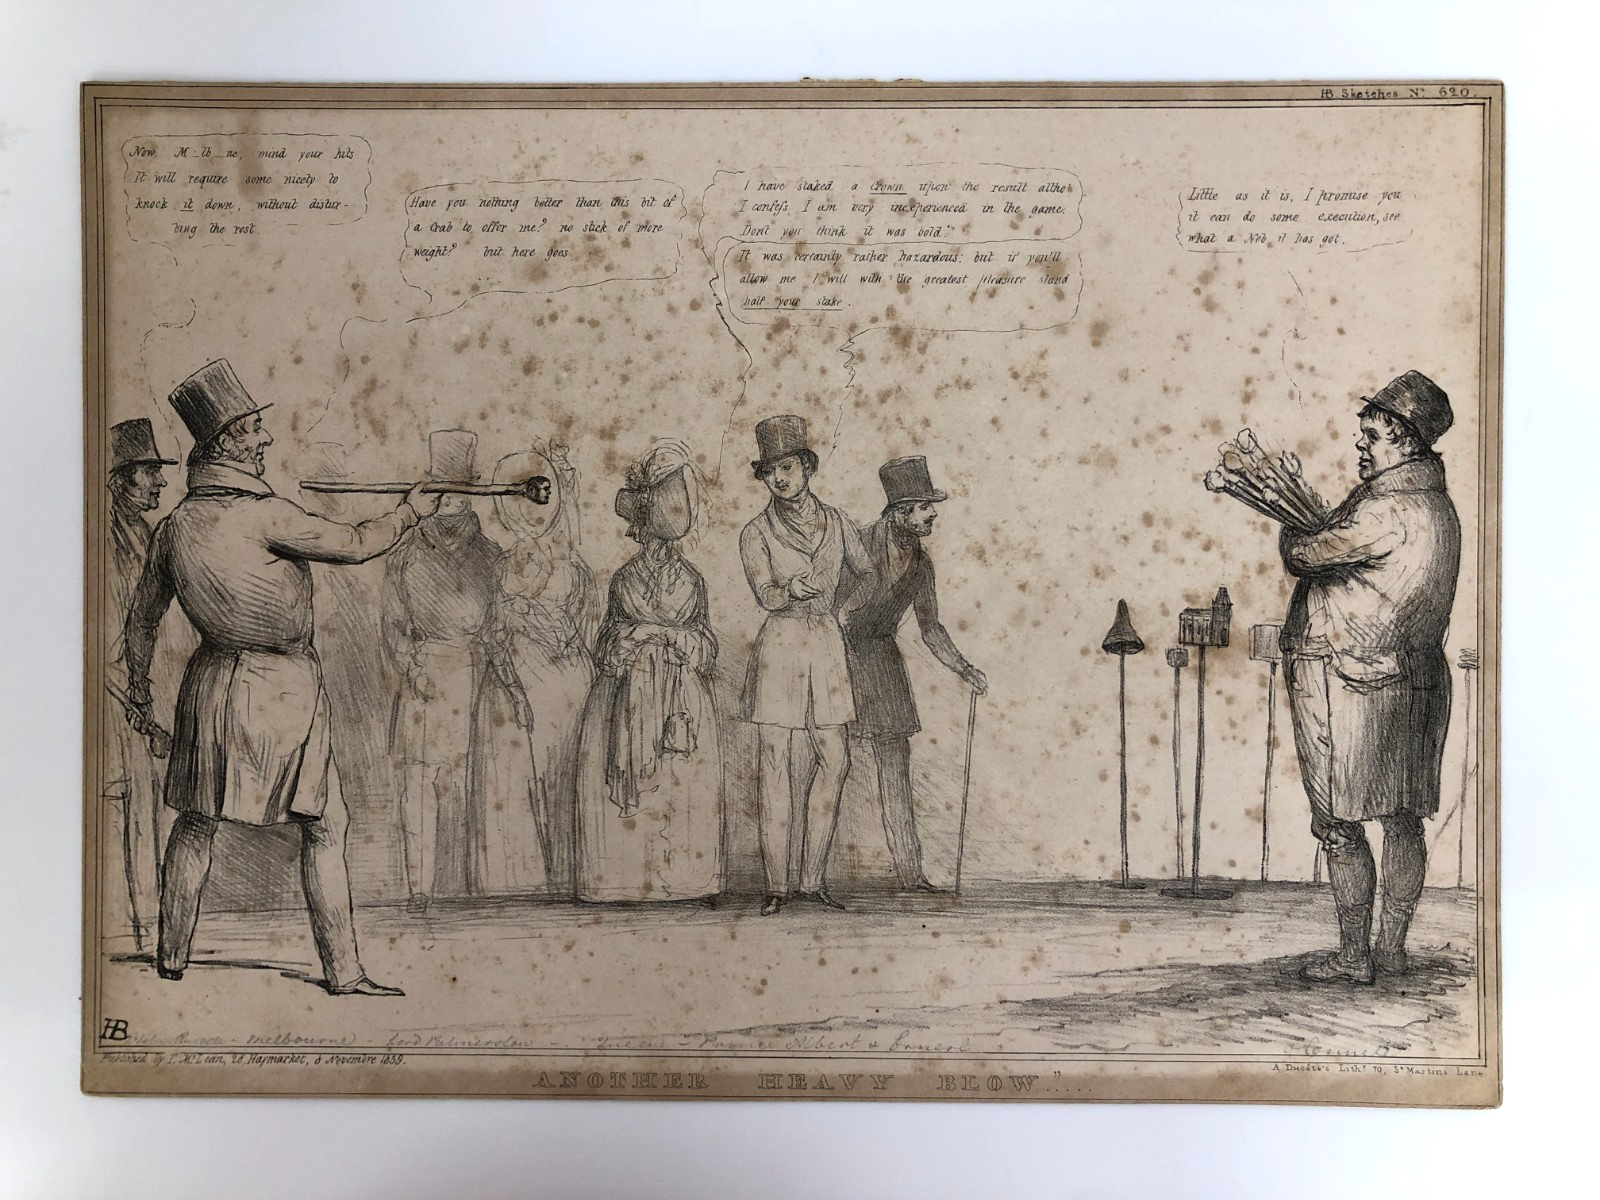 HB Sketches No. 620.
Now M_lb_ne, mind your hits
It will require some nicety to
knock it down, without distur-
bing the rest
Have you nothing better than this bit of
a Crab to offer me? no stick of more
weight? but here goes
I have staked a crown upon the result altho'
I confess I am very inexperienced in the game.
Don't you think it was bold?
It was certainly rather hazardous; but if you'll
allow me I will with the greatest pleasure stand
half your stake.
Little as it is, I promise you
it can do some execution, see
what a Nob it has got.
HB
Melbourne - Lord Palmerston - Queen - Prince Albert & Ernest
Published by T. McLean, 26 Haymarket, 6 Novembre 1839.
A. Ducôte's Lithy. 70, St Martins Lane
ANOTHER HEAVY BLOW".....